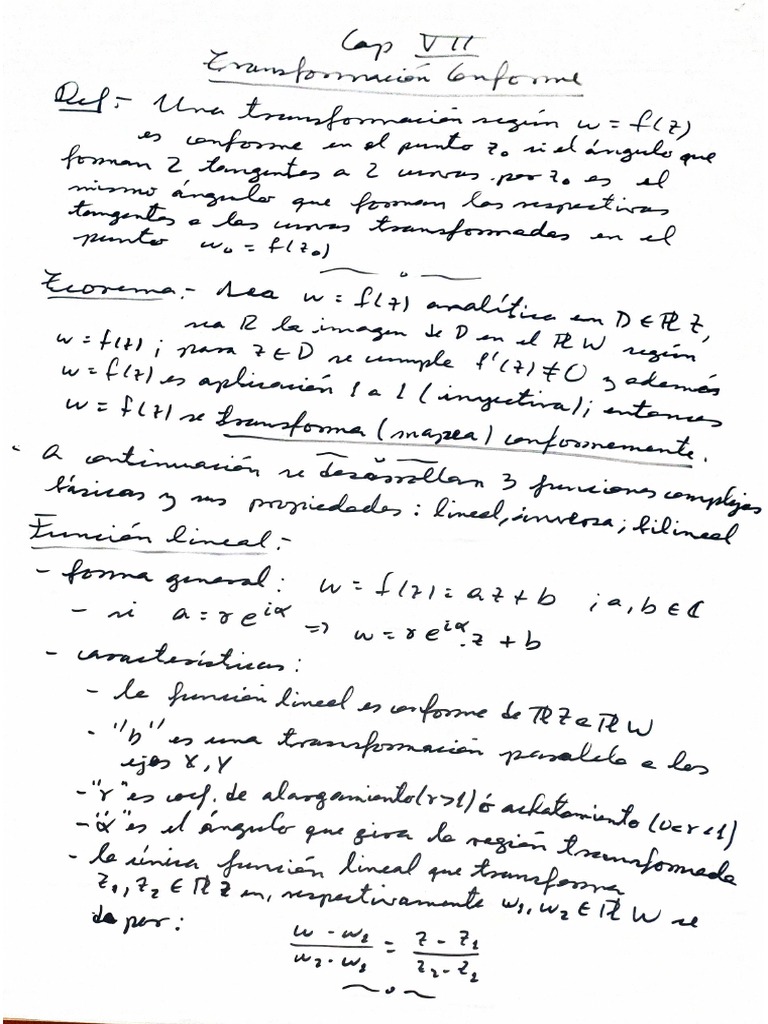 Cap VII
Transformación Conforme
Def.- Una transformación según w = f(z)
es conforme en el punto z₀ si el ángulo que
forman 2 tangentes a 2 curvas por z₀ es el
mismo ángulo que forman las respectivas
tangentes a las curvas transformadas en el
punto w₀ = f(z₀)
Teorema.- Sea w = f(z) analítica en D ∈ Pl Z,
sea R la imagen de D en el Pl W según
w = f(z); para z ∈ D se cumple f'(z) ≠ 0 y además
w = f(z) es aplicación 1 a 1 (inyectiva); entonces
w = f(z) se transforma (mapea) conformemente.
A continuación se desarrollan 3 funciones complejas
básicas y sus propiedades: lineal, inversa; bilineal
Función lineal:-
- forma general: w = f(z) = az + b ; a, b ∈ ℂ
- si a = re^{iα} ⇒ w = re^{iα}.z + b
- características:
- la función lineal es conforme de Pl Z a Pl W
- "b" es una transformación paralela a los
ejes X, Y
- "r" es coef. de alargamiento (r>1) ó achatamiento (0<r<1)
- "α" es el ángulo que gira la región transformada
- la única función lineal que transforma
z₁, z₂ ∈ Pl Z en, respectivamente w₁, w₂ ∈ Pl W se
da por:
(w - w₁)/(w₂ - w₁) = (z - z₁)/(z₂ - z₁)